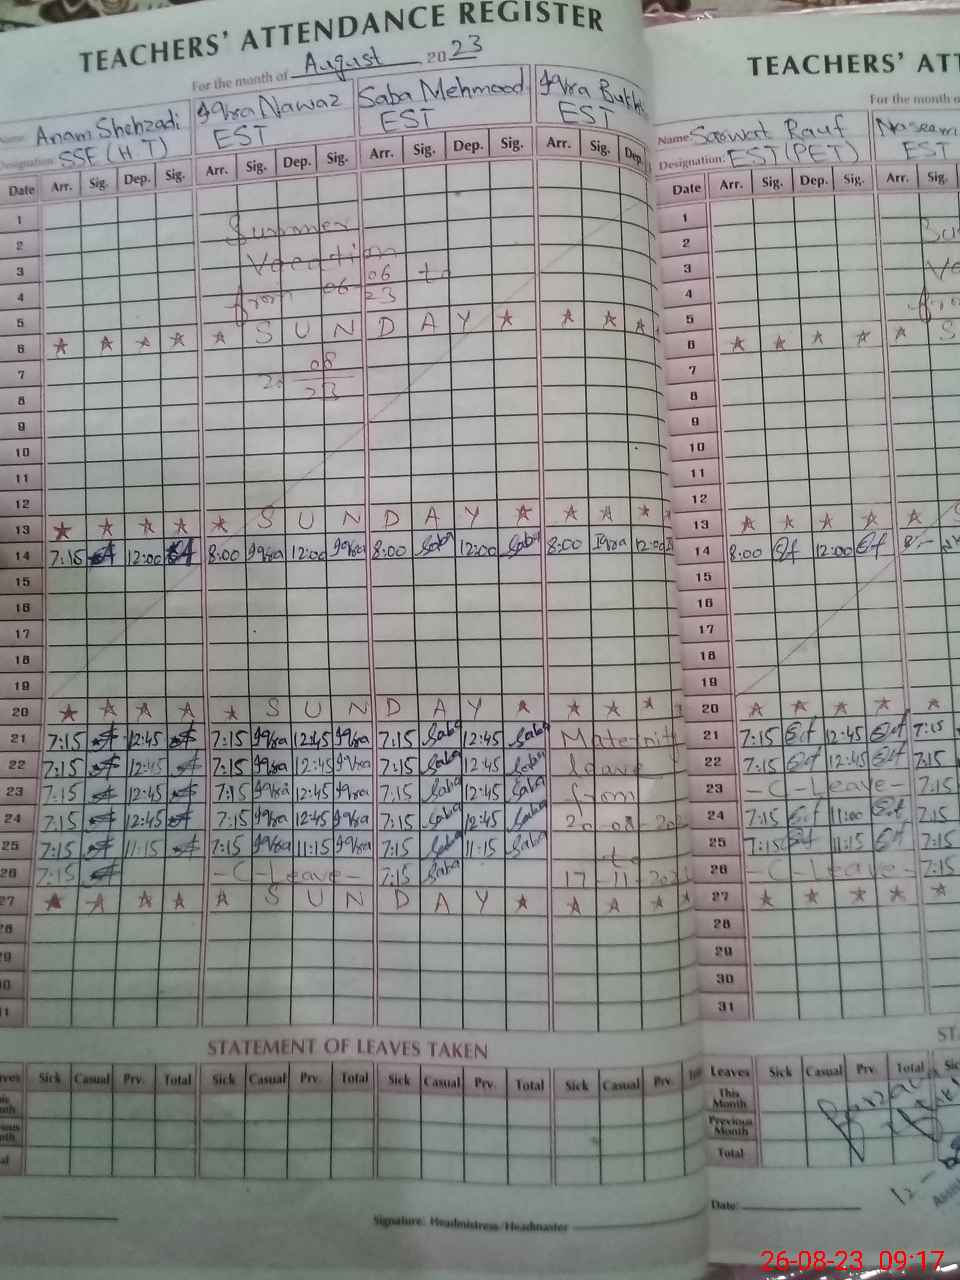 TEACHERS' ATTENDANCE REGISTER
For the month of August 2023
Name: Anam Shehzadi Iqra Nawaz Saba Mehmood Iqra
Designation: SSE (HT) EST EST EST
Date Arr. Sig. Dep. Sig. Arr. Sig. Dep. Sig. Arr. Sig. Dep. Sig. Arr. Sig. Dep.
1
2 Summer
3 Vacation
4 from 06-06-23 to
5
6 ★ ★ ★ ★ ★ S U N D A Y ★ ★ ★ ★
7 20-08-23
8
9
10
11
12
13 ★ ★ ★ ★ ★ S U N D A Y ★ ★ ★ ★
14 7:15 12:00 8:00 Iqra 12:00 Iqra 8:00 Saba 12:00 Saba 8:00 Iqra 12:00
15
16
17
18
19
20 ★ ★ ★ ★ ★ S U N D A Y ★ ★ ★ ★
21 7:15 12:45 7:15 Iqra 12:45 Iqra 7:15 Saba 12:45 Saba Maternity
22 7:15 12:45 7:15 Iqra 12:45 Iqra 7:15 Saba 12:45 Saba leave
23 7:15 12:45 7:15 Iqra 12:45 Iqra 7:15 Saba 12:45 Saba from
24 7:15 12:45 7:15 Iqra 12:45 Iqra 7:15 Saba 12:45 Saba 20-08-202
25 7:15 11:15 7:15 Iqra 11:15 Iqra 7:15 Saba 11:15 Saba to
26 7:15 -C-Leave- 7:15 Saba 17-11-202
27 ★ ★ ★ ★ ★ S U N D A Y ★ ★ ★ ★
28
29
30
31
STATEMENT OF LEAVES TAKEN
Leaves Sick Casual Prv. Total Sick Casual Prv. Total Sick Casual Prv. Total Sick Casual Prv.
Signature: Headmistress/Headmaster
TEACHERS' ATT
For the month o
Name: Sarwat Rauf Naseem
Designation: EST (PET) EST
Date Arr. Sig. Dep. Sig. Arr. Sig.
1
2
3
4
5
6 ★ ★ ★ ★ ★ S
7
8
9
10
11
12
13 ★ ★ ★ ★ ★
14 8:00 12:00
15
16
17
18
19
20 ★ ★ ★ ★ ★
21 7:15 12:45 7:15
22 7:15 12:45 7:15
23 -C-Leave- 7:15
24 7:15 11:00 7:15
25 7:15 11:15 7:15
26 -C-Leave- 7:15
27 ★ ★ ★ ★ ★
28
29
30
31
Leaves Sick Casual Prv. Total
This Month
Previous Month
Total
Date:
26-08-23 09:17